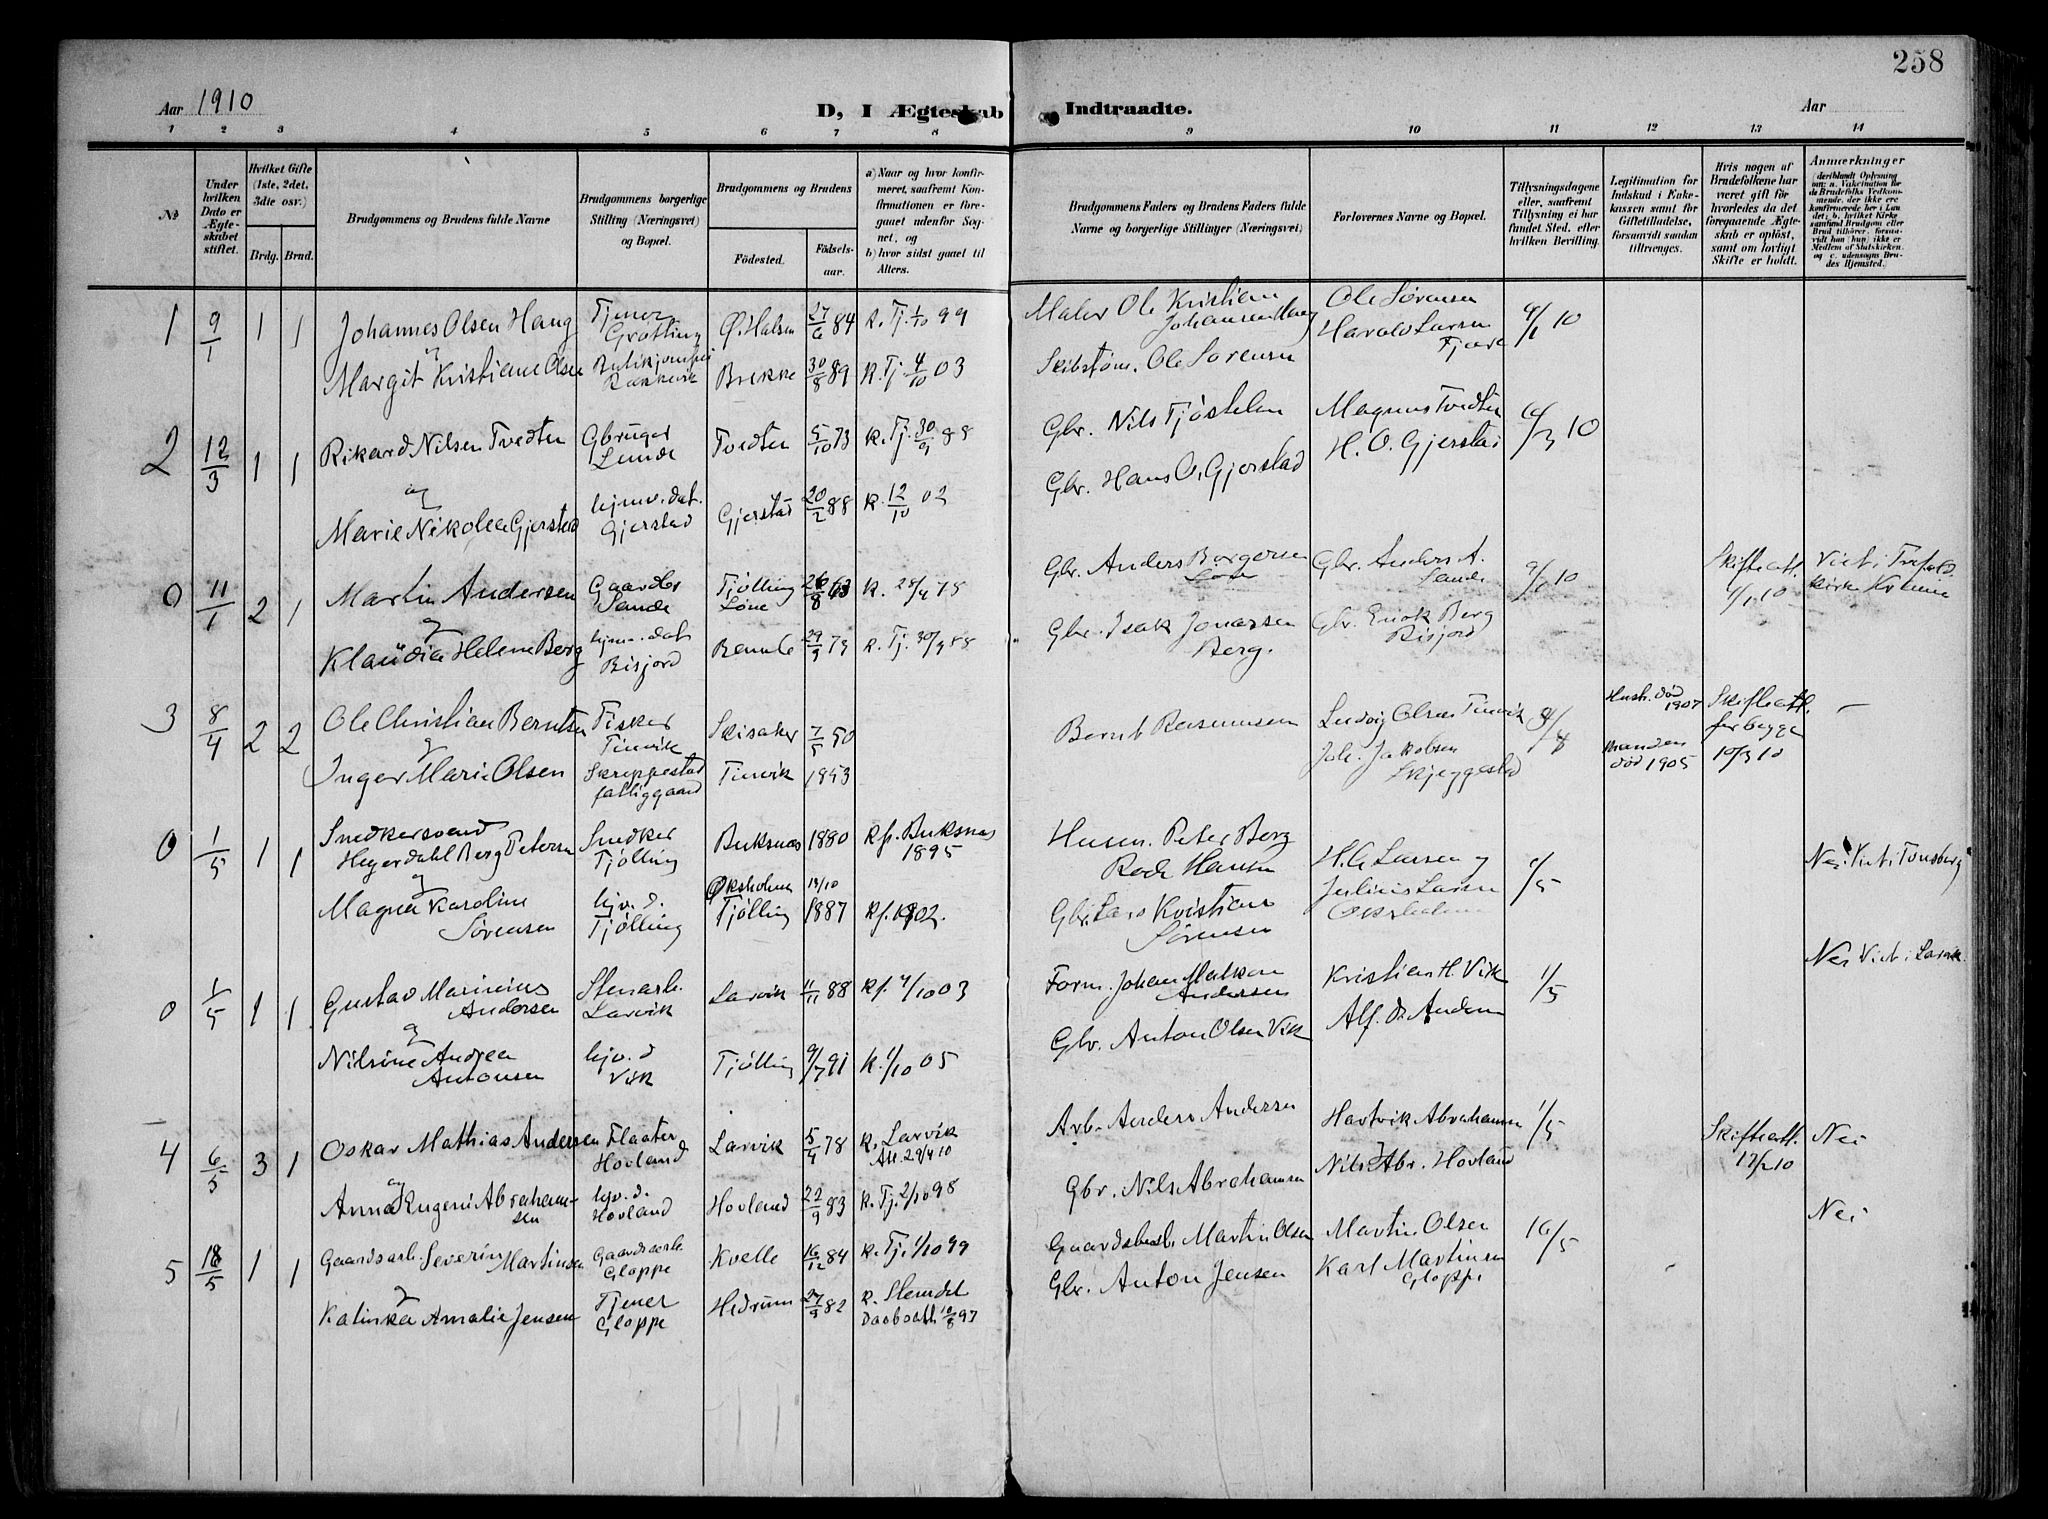 258
Aar 1910
D, I Ægteskab Indtraadte.
Aar
1 2 3 4 5 6 7 8 9 10 11 12 13 14
№
Under hvilken Dato er Ægteskabet stiftet.
Hvilket Gifte (1ste, 2det, 3die osv.)
Brdg. Brud.
Brudgommens og Brudens fulde Navne
Brudgommens borgerlige Stilling (Næringsvei) og Bopæl.
Brudgommens og Brudens
Fødested. Fødselsaar.
a) Naar og hvor konfirmeret, saafremt Konfirmationen er foregaaet udenfor Sognet, og
b) hvor sidst gaaet til Alters.
Brudgommens Faders og Brudens Faders fulde Navne og borgerlige Stillinger (Næringsvei)
Forlovernes Navne og Bopæl.
Tillysningsdagene eller, saafremt Tillysning ei har fundet Sted, efter hvilken Bevilling.
Legitimation for Indskud i Enkekassen samt for Giftetilladelse, forsaavidt saadan tiltrænges.
Hvis nogen af Brudefolkene har været gift før hvorledes da det foregaaende Ægteskab er opløst, samt om lovligt Skifte er holdt.
Anmærkninger
(deriblandt Oplysning om: a. Vakcination for de Brudefolks Vedkommende, der ikke ere konfirmerede her i Landet; b. hvilket Kirkesamfund Brudgom eller Brud tilhører, forsaavidt han (hun) ikke er Medlem af Statskirken og c. udensogns Brudes Hjemsted.
1 9/1 1 1 Johannes Olsen Haug Tjener Grøtting Ø. Halsen 27/6 84 K. Tj. 1/10 99 Maler Ole Kristian Johansen Haug Ole Sørensen 9/1 10
og Harald Larsen
Margit Kristiane Olsen Brekke 30/8 89 K. Tj. 4/10 03 Skibstøm. Ole Sørensen
2 12/3 1 1 Rikard Nilsen Tvedten Gbruger Lunde Tvedten 5/10 73 K. Tj. 30/9 88 Gbr. Nils Tjøstelsen Magnus Tvedten
og H. O. Gjerstad
Marie Nikolea Gjerstad hjmv. dat. Gjerstad Gjerstad 20/2 88 K. 12/10 02 Gbr. Hans O. Gjerstad
0 11/1 2 1 Martin Andersen Gaardbr Sande Tjølling Løve 26/8 63 K. Gbr. Anders Borgersen Gbr. Anders A. Sande 9/1 10 Skifteatt. 9/1 10
og
Klaudia Helene Berg hjmv. dat Risjord Bamble 29/9 73 K. Tj. 30/9 88 Gbr. Isak Jonassen Berg. Gbr. Enok Berg Risjord
3 8/4 2 2 Ole Christian Berntsen Fisker Tinvik Skisaker 7/5 50 Bernt Rasmussen Ludvig Olsen Tinvik Hustr. død 1907 Skifteatt. for begge 10/3 10 —
og Joh. Jakobsen Skjeggestad
Inger Marie Olsen Skreppestad fattiggaard Tinvik 1853 Manden død 1905
0 1/5 1 1 Snedkersvend Heyerdahl Berg Petersen Snedker Tjølling Buksnæs 1880 Kf. Buksnæs 1895 Husm. Peter Berg Hansen H. A. Larsen og 1/5 Nei Viet i Tønsberg
og Julius Larsen
Magna Karoline Sørensen hjv. d. Tjølling Øksholmen Tjølling 13/10 1887 Kf. 1902. Gbr. Lars Kristian Sørensen
0 1/5 1 1 Gustav Marinius Andersen Stenarb. Larvik Larvik 11/11 88 Kf. 4/10 03 Form. Johan Andersen Kristian H. Vik 1/5 Nei Viet i Larvik.
og
Nilsine Andrea Antonsen hjv. d Vik Tjølling 9/7 91 K. 1/10 05 Gbr. Anton Olsen Vik
4 6/5 3 1 Oskar Mathias Andersen Fløater Hovland Larvik 5/4 78 K. Larvik Att. 29/4 10 Arb. Anders Andersen Hartvik Abrahamsen 1/5 Skifteatt. 12/2 10 Nei
og Nils Abr. Hovland
Anna Eugeni Abrahamsen hjv. d. Hovland Hovland 22/9 83 K. Tj. 2/10 98 Gbr. Nils Abrahamsen Nei
5 18/5 1 1 Gaardsarb. Severin Martinsen Gaardsarb. Gloppe Kvelle 16/12 84 K. Tj. 1/10 99 Gaardsbest. Martin Olsen Martin Olsen 16/5
og Karl Martinsen Gloppe
Kalinka Amalie Jensen Tjener Gloppe Hedrum 27/9 82 K. Slemdal Daabsatt. 10/8 97 Gbr. Anton Jensen